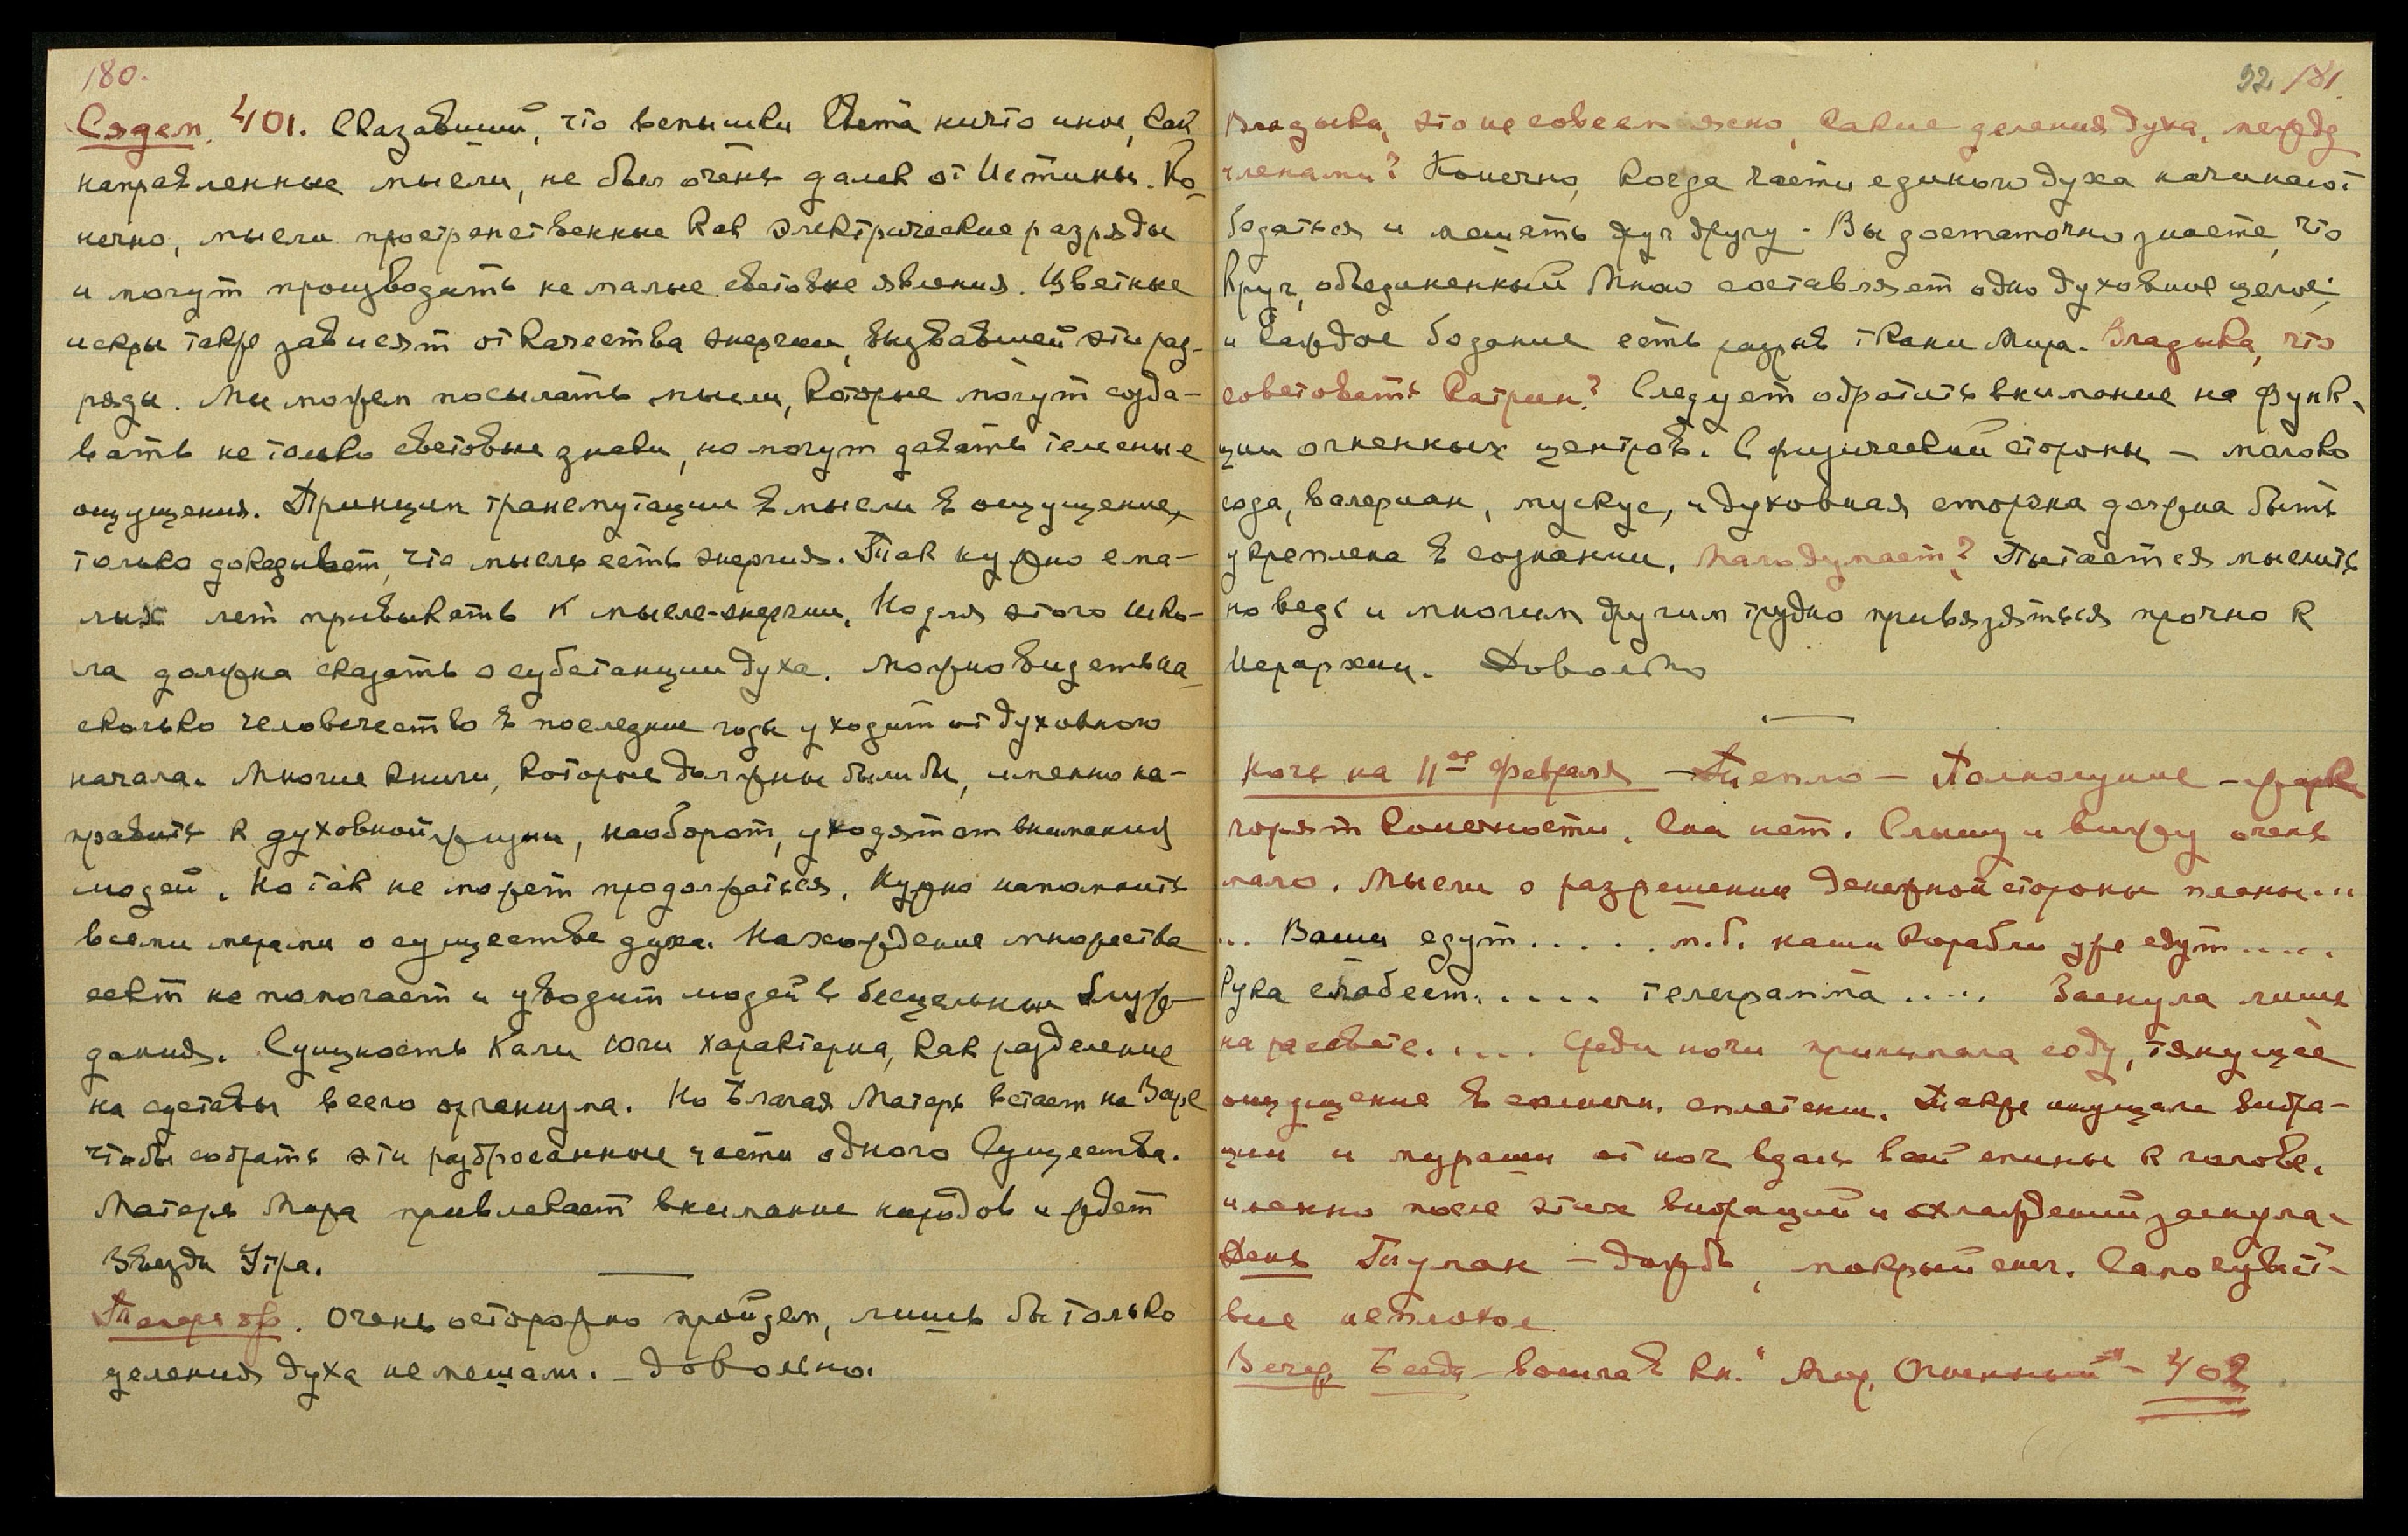 180.
Сядем. 401. Сказавший, что вспышки Света ничто иное, как
направленные мысли, не был очень далек от Истины. Ко-
нечно, мысли пространственные как электрические разряды
и могут производить не малые световые явления. Цветные
искры также зависят от качества энергии, вызвавшей эти раз-
ряды. Мы можем посылать мысли, которые могут созда-
вать не только световые знаки, но могут давать телесные
ощущения. Принцип трансмутации в мысли в ощущение,
только доказывает, что мысль есть энергия. Так нужно с ма-
лых лет привыкать к мысле-энергии. Но для этого шко-
ла должна сказать о субстанции духа. Можно видеть на-
сколько человечество в последние годы уходит от духовного
начала. Многие книги, которые должны были бы, именно на-
править к духовной жизни, наоборот, уходят от внимания
людей. Но так не может продолжаться. Нужно напомнить
всеми мерами о существе духа. Нахождение множества
сект не помогает и уводит людей в бесцельные блуж-
дания. Сущность Кали Юги характерна, как разделение
на суставы всего организма. Но Благая Матерь встает на Заре
чтобы собрать эти разбросанные части одного Существа.
Матерь Мира привлекает внимание народов и ждет
Звезды Утра.
Теперь же. Очень осторожно пройдем, лишь бы только
деления духа не мешали. – Довольно.
92 181.
Владыка, это не совсем ясно, какие деления духа, между
членами? Конечно, когда части единого духа начинают
бодаться и мешать друг другу. Вы достаточно знаете, что
круг, объединенный Мною составляет одно духовное целое;
и каждое бодание есть разрыв ткани Мира. Владыка, что
советовать Катрин? Следует обратить внимание на функ-
ции огненных центров. С физической стороны – молоко
сода, валериан, мускус, и духовная сторона должна быть
укреплена в сознании. Мало думает? Пытается мыслить
но ведь и многим другим трудно привязяться прочно к
Иерархии. Довольно
Ночь на 11ое февраля – Тепло – Полнолуние – жарк
горят конечности. Сна нет. Слышу и вижу очень
мало. Мысли о разрешении денежной стороны плана...
... Ваши едут ..... м.б. наши корабли уже едут .....
Рука слабеет ..... телеграмма ..... Заснула лишь
на рассвете ..... Среди ночи принимала соду, тянущее
ощущение в солнечн. сплетении. Также ощущала вибра-
ции и мураши от ног вдоль всей спины к голове.
именно после этих вибраций и охлаждений заснула.
День Туман – дождь, мокрый снег. Самочувст-
вие неплохое
Вечер. Беседа – вошла в кн. "Мир Огненный" – 402